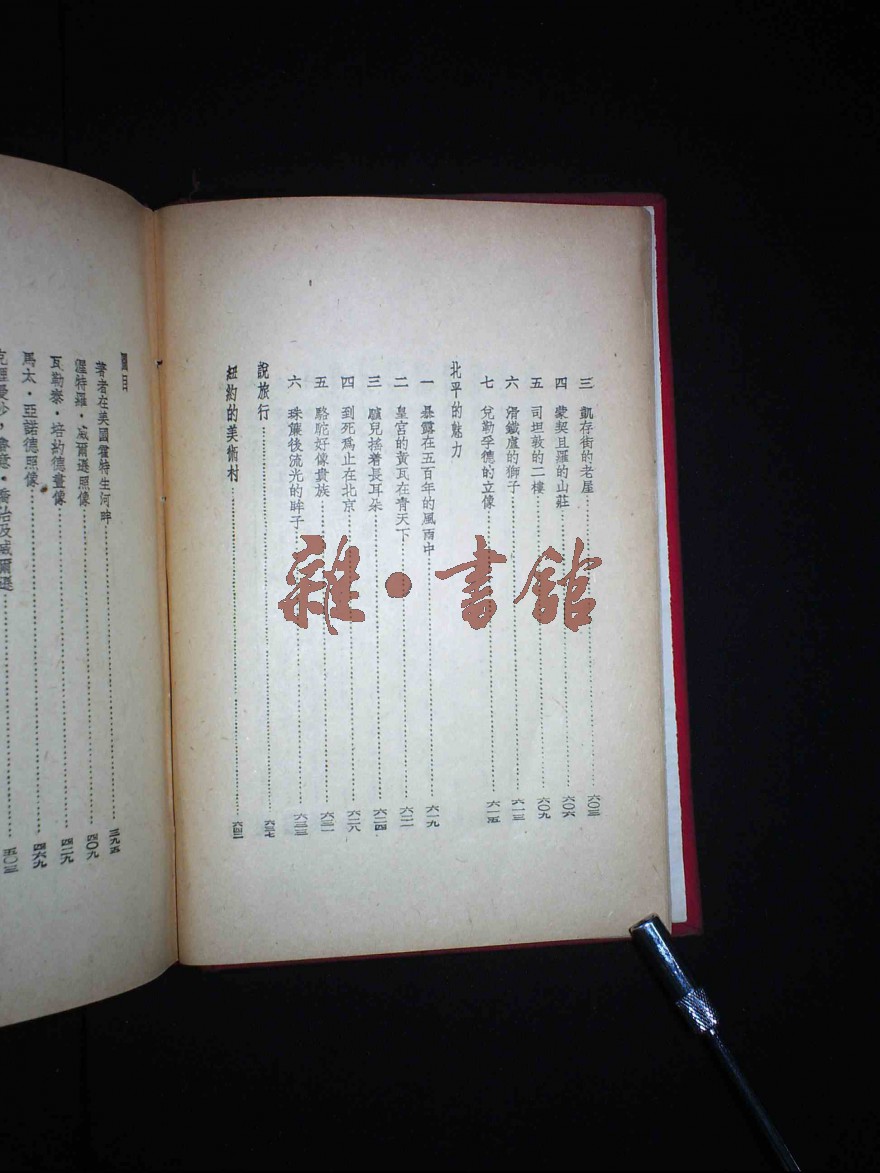 三 凱存街的老屋……六〇三
四 蒙契且羅的山莊……六〇六
五 司坦敦的二樓……六〇九
六 滑鐵盧的獅子……六一三
七 兌勒孚德的立像……六一五
北平的魅力
一 暴露在五百年的風雨中……六一九
二 皇宮的黄瓦在青天下……六二一
三 驢兒搖着長耳朵……六二四
四 到死爲止在北京……六二八
五 駱駝好像貴族……六三一
六 珠簾後流光的眸子……六三三
說旅行……六三七
紐約的美術村……六四三
圖目
著者在美國霍特生河畔……三九五
渥特羅・威爾遜照像……四〇九
瓦勒泰・培約德畫像……四二九
馬太・亞諾德照像……四六九
喬治及威爾遜……五〇三
雜・書館